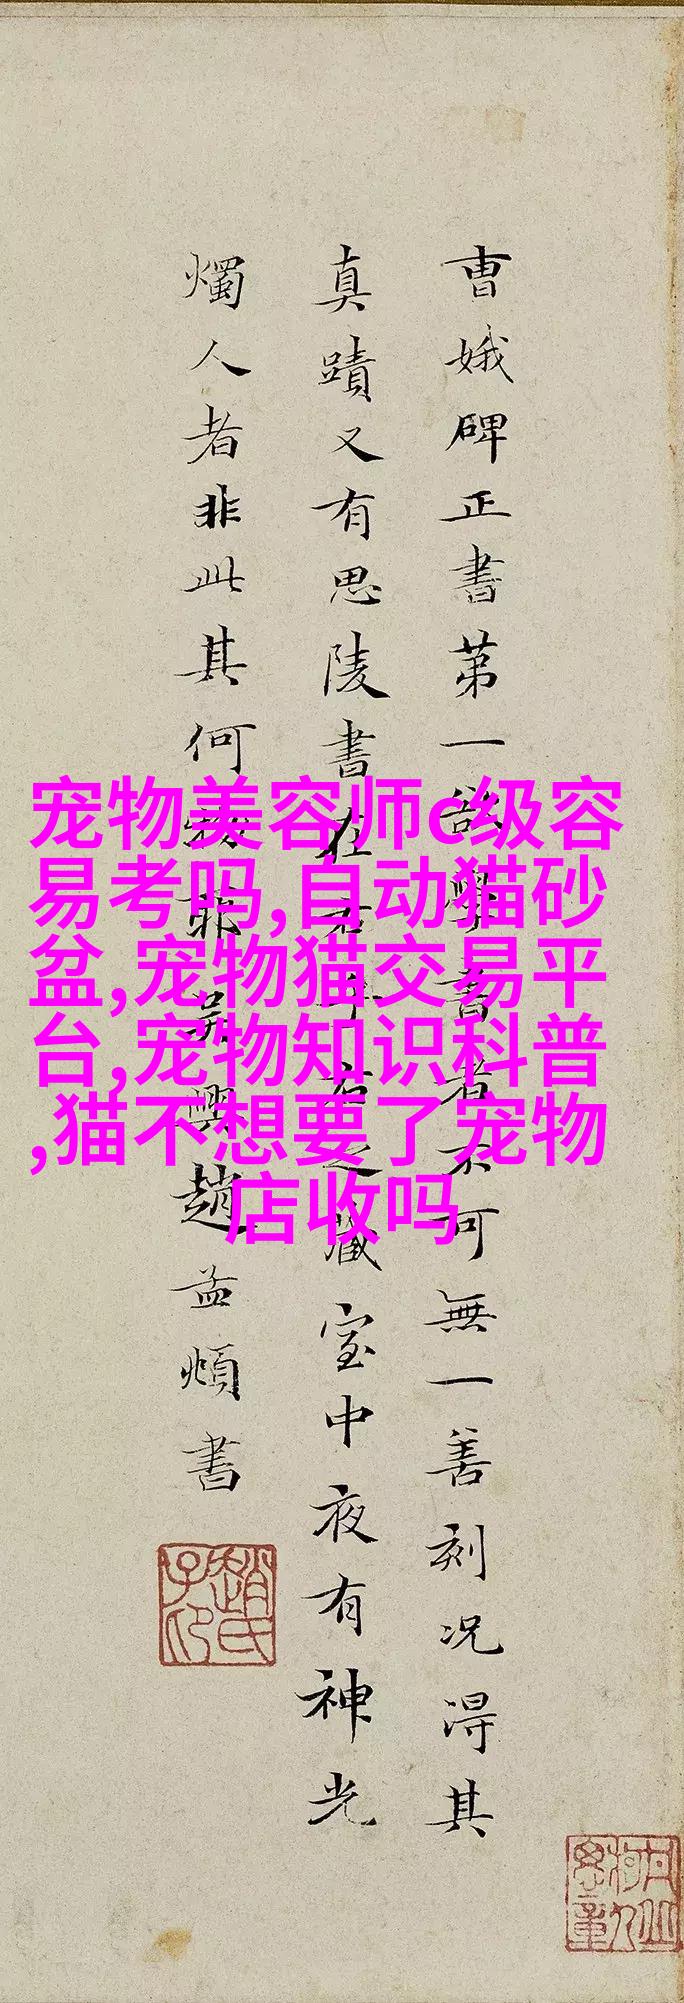 曹娥碑正書第一欲學書者不可無一善刻況得其
真蹟又有思陵書在右乎右之藏室中夜有神光
燭人者非此其何物耶吳興趙孟頫書
趙氏子印
宠物美容师c级容
易考吗,自动猫砂
盆,宠物猫交易平
台,宠物知识科普
,猫不想要了宠物
店收吗